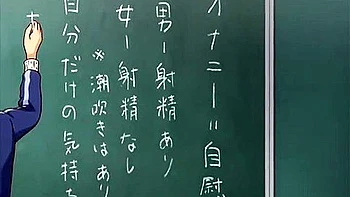 オナニー＝自慰
男ー射精あり
女ー射精なし
※潮吹きはあり
自分だけの気持ち